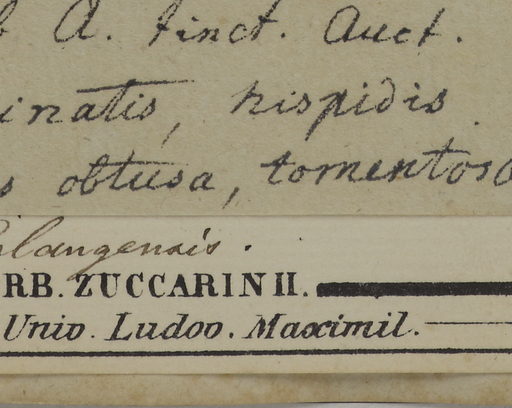 A. tinct. Auct.
inatis, hispidis.
s obtusa, tomentosa
langensis.
RB. ZUCCARINII.
Univ. Ludov. Maximil.